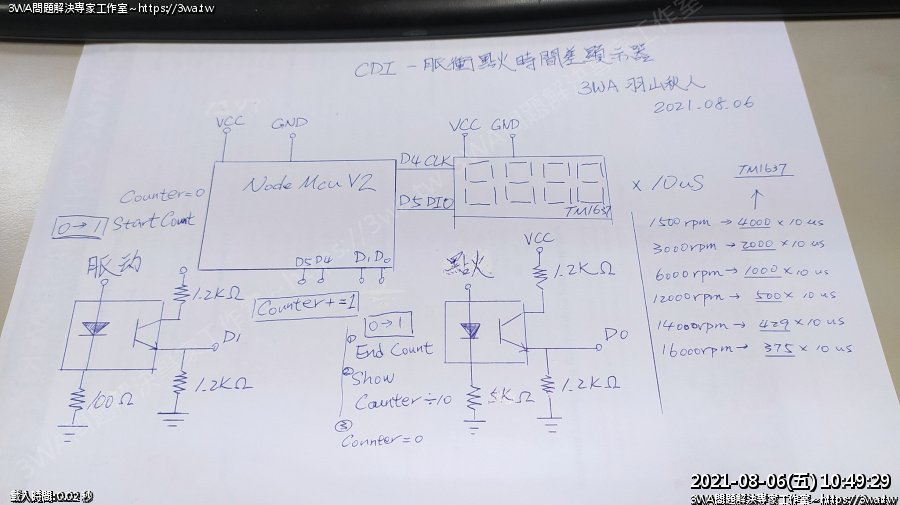 3WA問題解決專家工作室~https://3wa.tw
CDI - 脈衝點火時間差顯示器
3WA 羽山秋人
2021.08.06
VCC GND
VCC GND
Counter=0
0→1 Start Count
Node Mcu V2
D4 CLK
D5 DIO
TM1637
× 10uS
TM1637
D5 D4 D1 D0
Counter+=1
脈动
1.2KΩ
D1
100Ω
1.2KΩ
0→1
① End Count
② Show
Counter÷10
③
Counter=0
點火
VCC
1.2KΩ
D0
5KΩ
1.2KΩ
1500rpm → 4000 × 10 us
3000rpm → 2000 × 10 us
6000rpm → 1000 × 10 us
12000rpm → 500 × 10 us
14000rpm → 429 × 10 us
16000rpm → 375 × 10 us
載入時間:0.02 秒
2021-08-06(五) 10:49:29
3WA問題解決專家工作室~https://3wa.tw